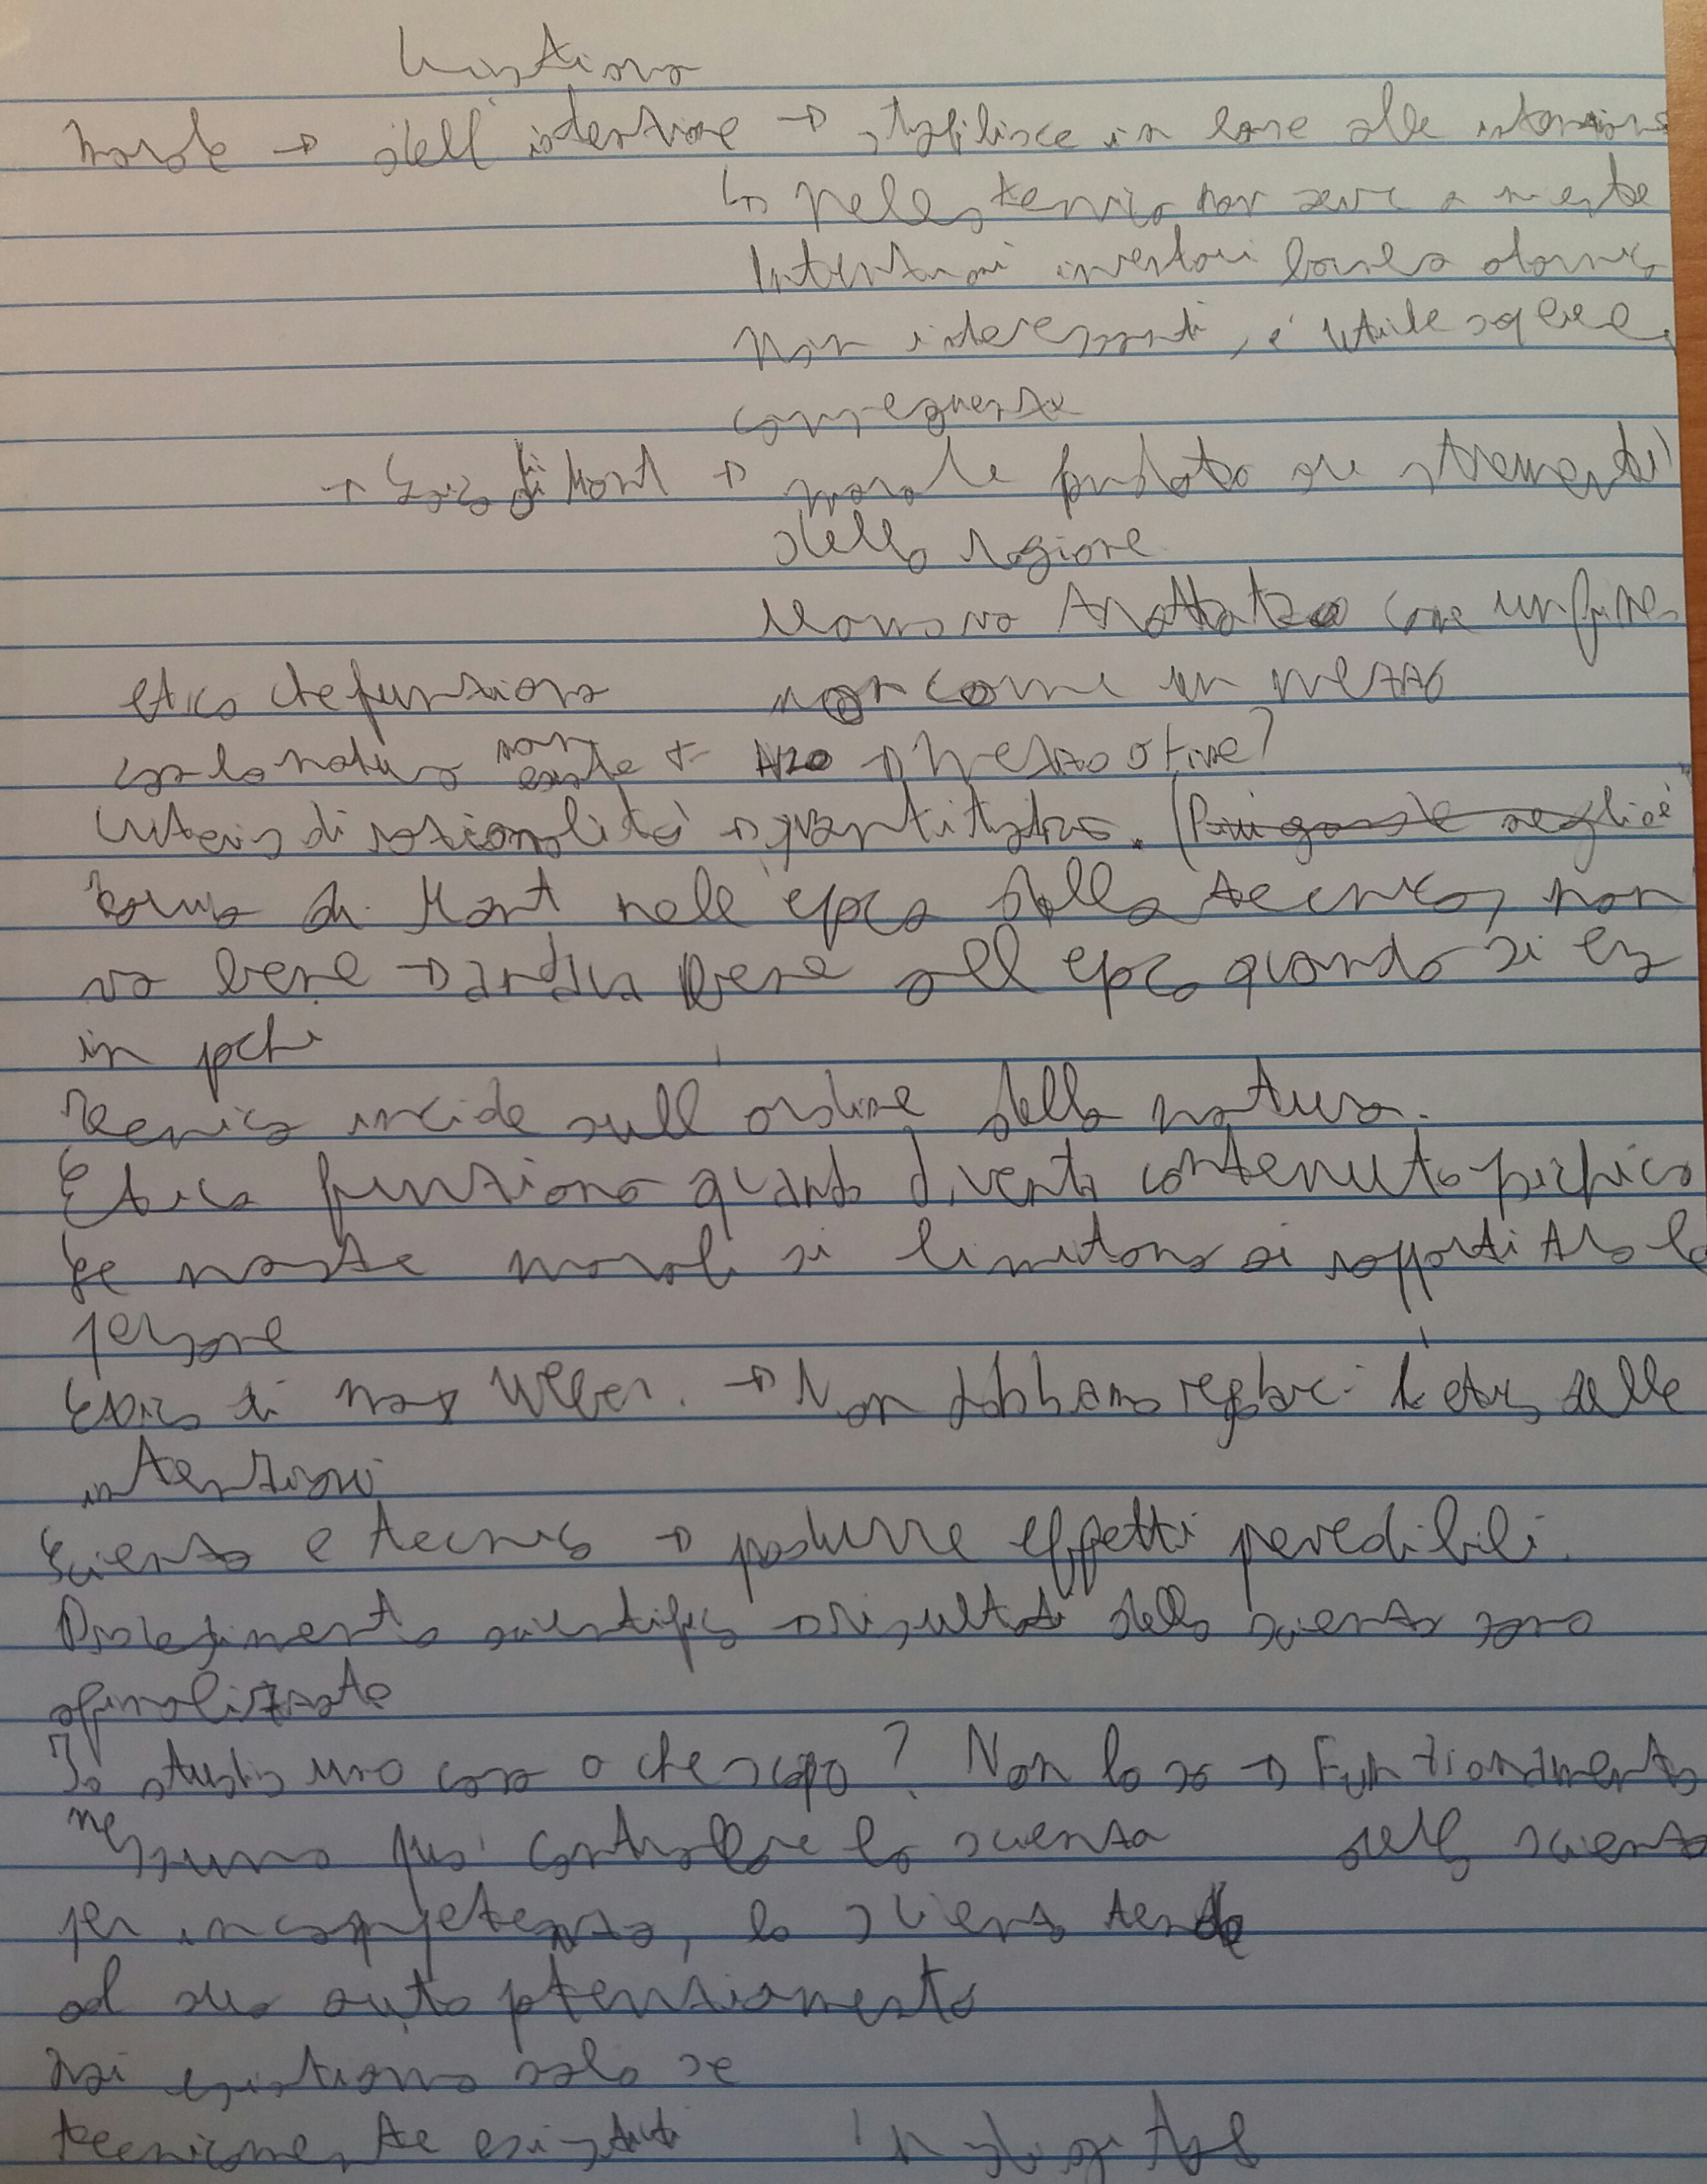 cristiana
morale → dell'intenzione → stabilisce in base alle intenzioni
↳ nella tecnica non serve a niente
Intenzioni inventori bomba atomica
Non interessanti, è utile sapere
conseguenze
→ Laica di Kant → morale fondata su strumenti
della ragione
Uomo va trattato come un fine,
etica che funziona non come un mezzo
con la natura non esiste ← → Mezzo o fine?
criterio di razionalità → quantitativo.
Forma di Kant nell'epoca della tecnica, non
va bene → andava bene all'epoca quando si era
in pochi
Tecnica incide sull ordine della natura.
Etica funziona quando diventa contenuto psichico
Le nostre morali si limitano ai rapporti tra le
persone
Etica di Max Weber. → Non dobbiamo regolarci l'etica delle
intenzioni
Scienza e tecnica → produrre effetti prevedibili.
scientifico → risultati della scienza sono
afinalizzate
Io studio una cosa a che scopo? Non lo so → Funzionamento
nessuno può controllare la scienza della scienza
per incompetenza, la scienza tende
al suo auto potenziamento
Noi esistiamo solo se
tecnicamente esistenti